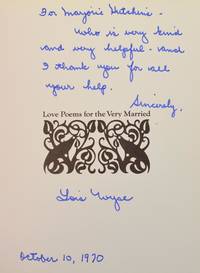 For Marjorie Hutchins -
Who is very kind
and very helpful - and
I thank you for all
your help.
Sincerely,
Love Poems for the Very Married
Lois Wyse
October 10, 1970